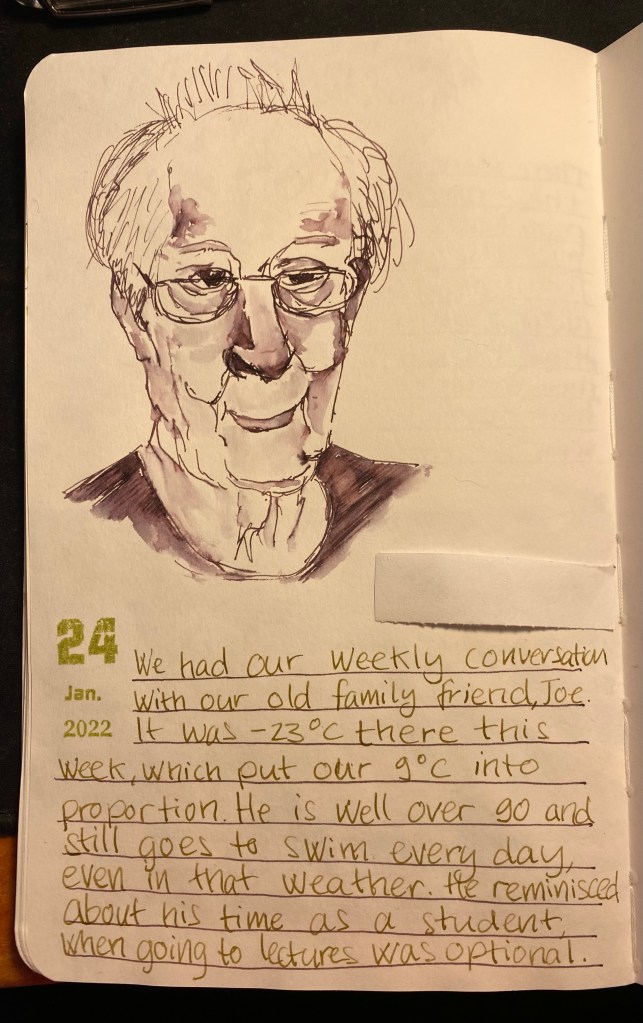 24
Jan.
2022
We had our weekly conversation
with our old family friend, Joe.
It was -23°C there this
week, which put our 9°C into
proportion. He is well over 90 and
still goes to swim every day,
even in that weather. He reminisced
about his time as a student,
when going to lectures was optional.